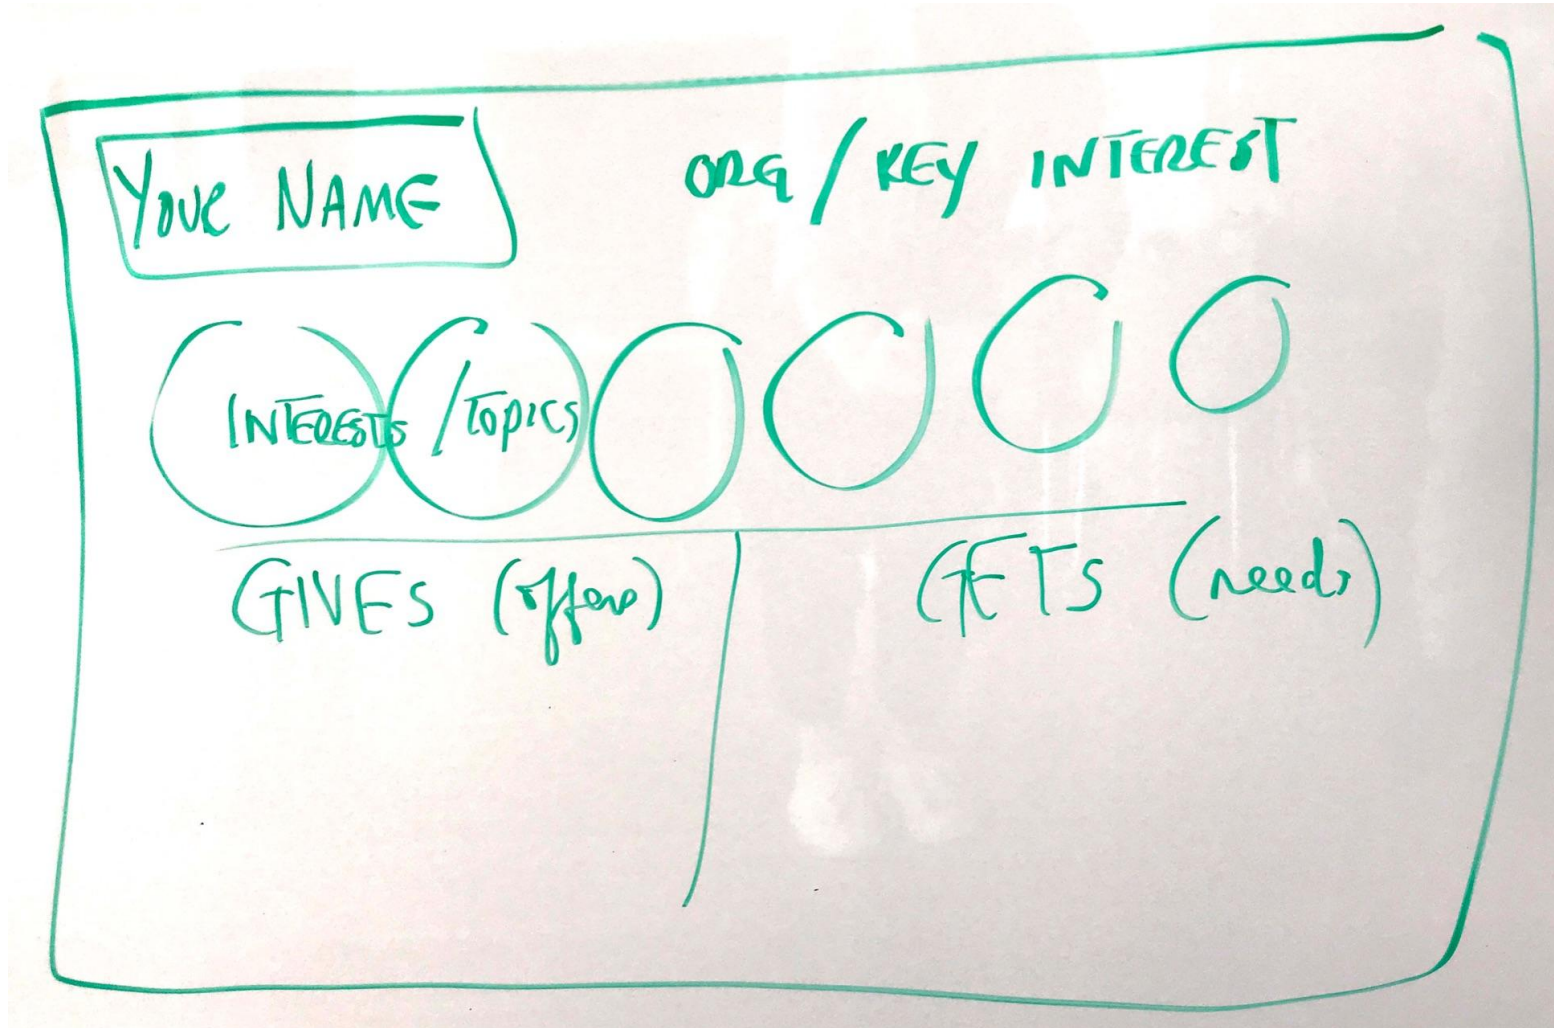 YOUR NAME
ORG / KEY INTEREST
INTERESTS / TOPICS
GIVES (offers)
GETS (needs)